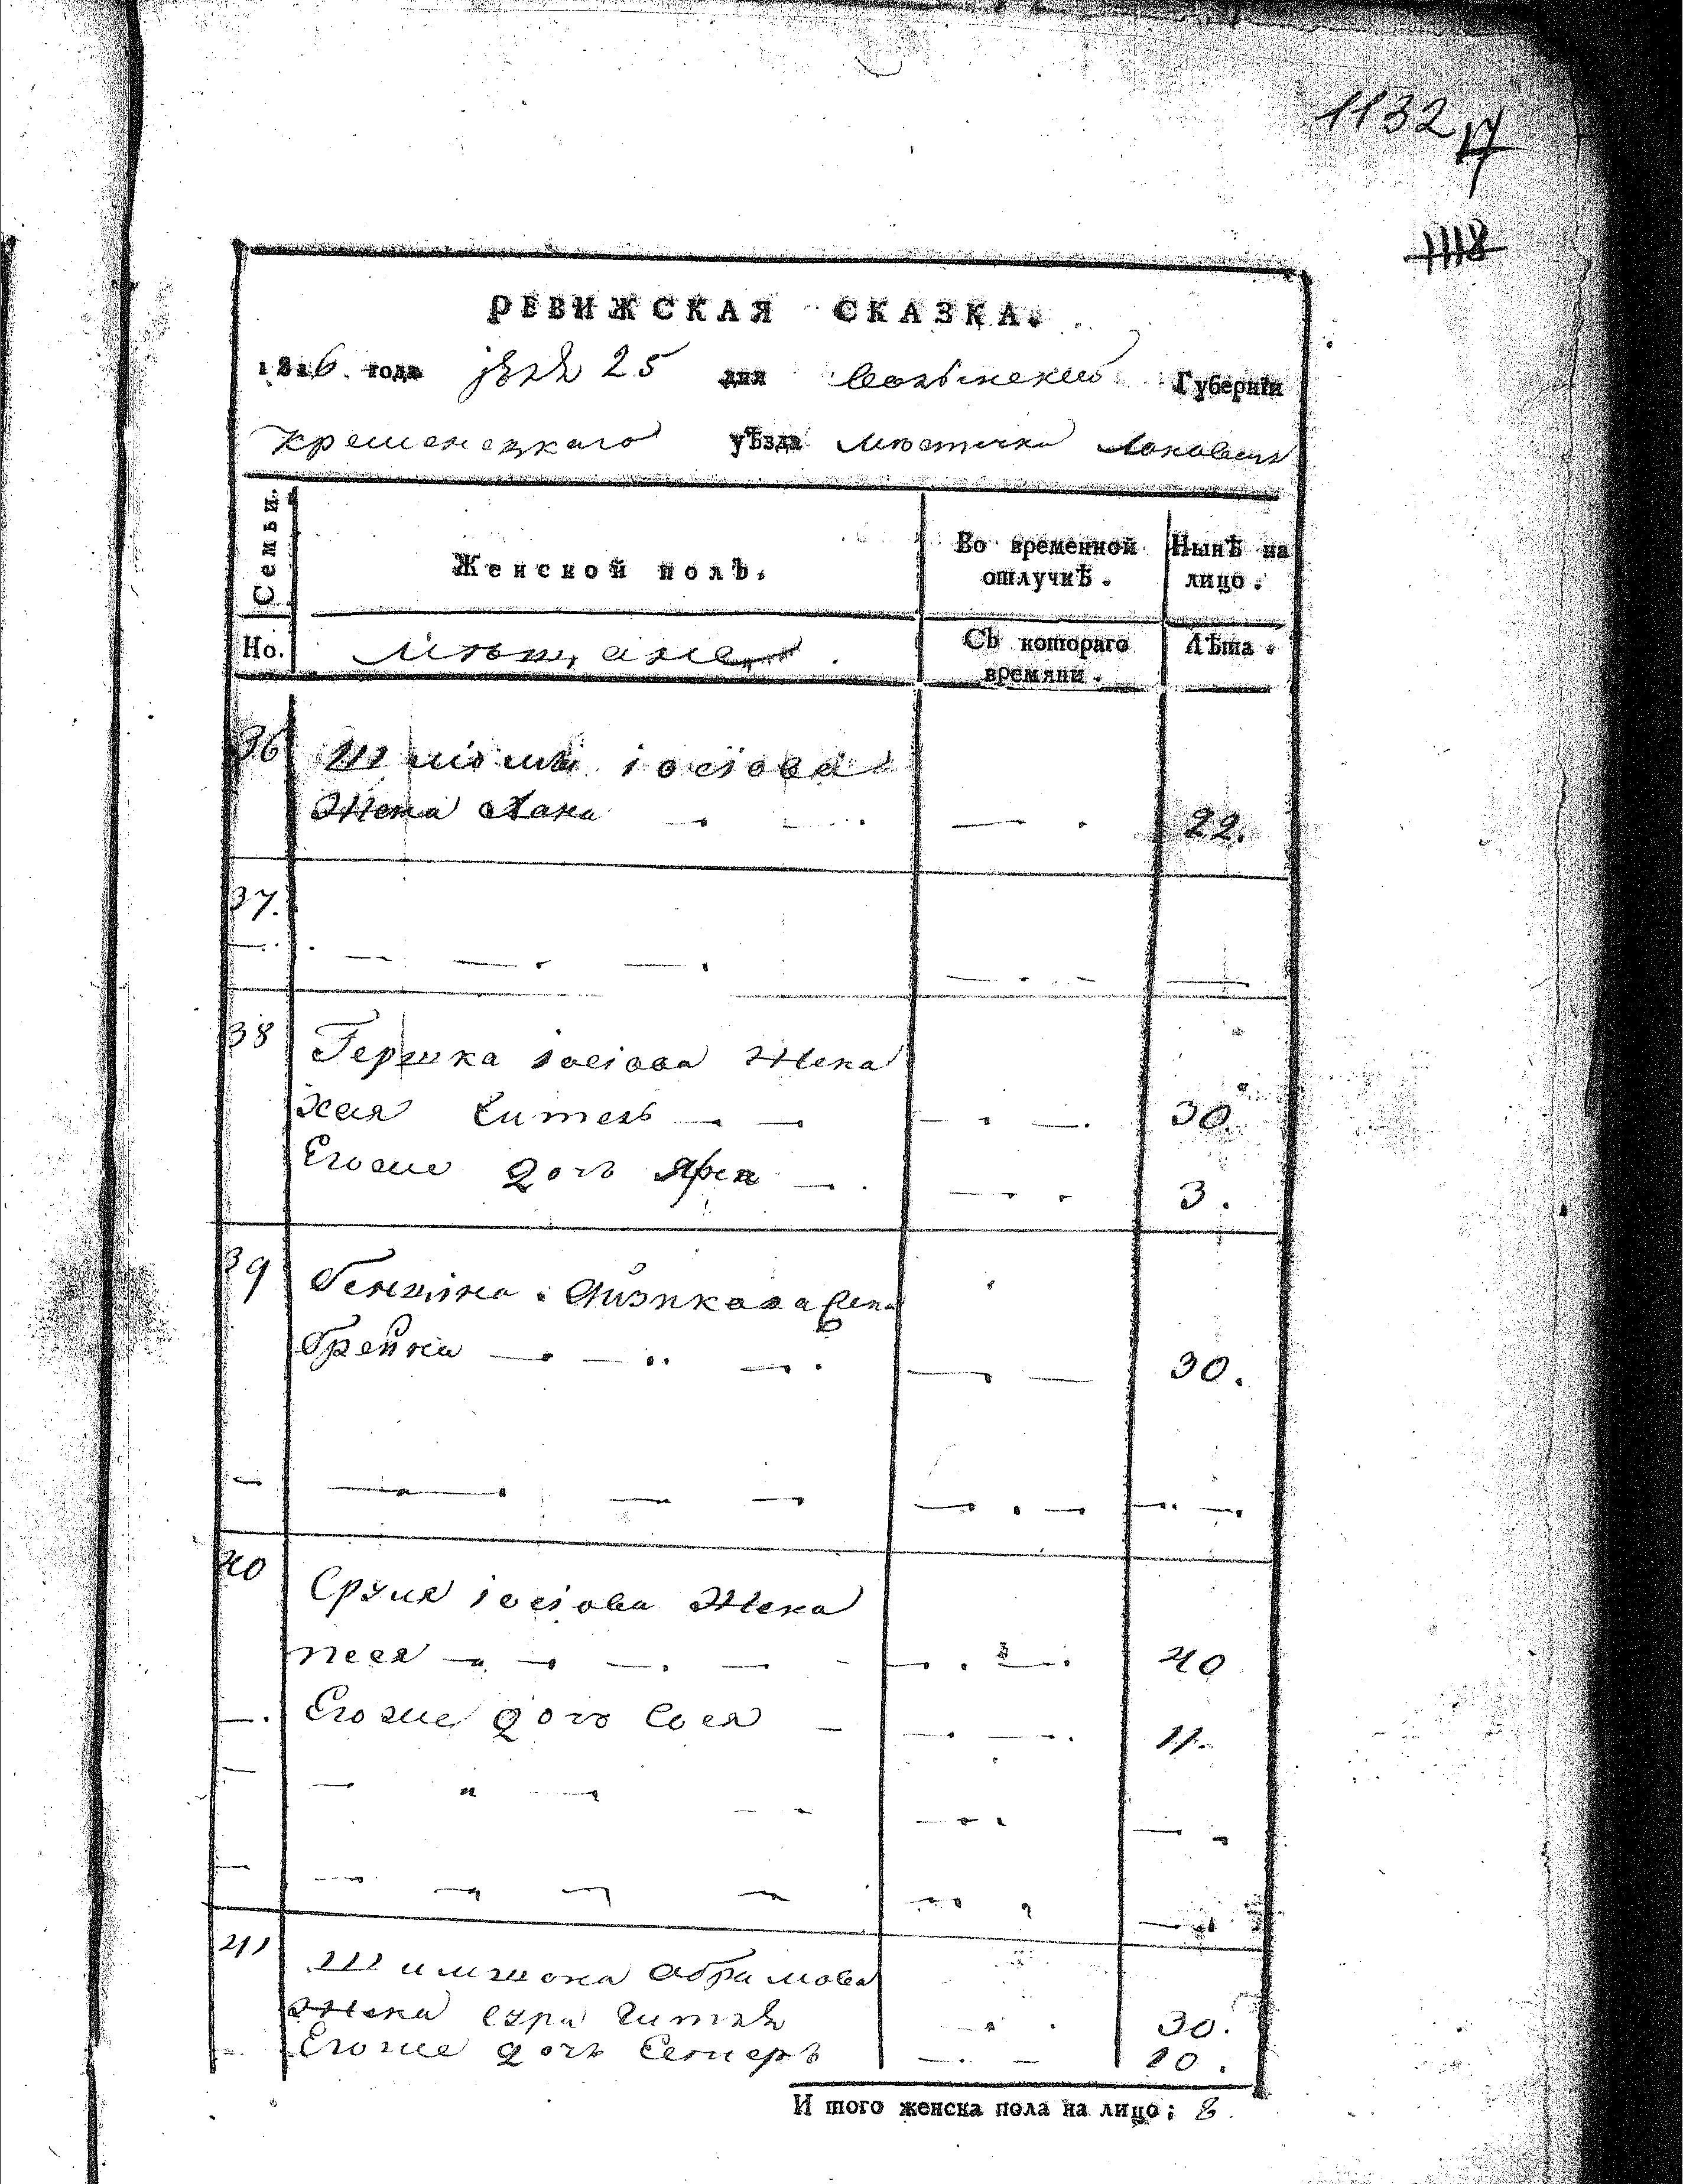 1132
17
1118
РЕВИЖСКАЯ СКАЗКА.
1816 года 25 дня Волынской Губернїи
Кременецкаго уѣзда местечка
Семьи.
Женской полъ.
Во временной отлучкѣ.
Нынѣ на лицо.
Но.
мѣщане
Съ котораго времяни.
Лѣта.
36 Шліомы іосіова
Жена Хана 22.
37.
38 Гершка іосіова Жена
Хая Гитель 30
Егоже дочь 3.
39 Бенціяна Айзикова Жена
Брейна 30.
40 Сруля іосіова Жена
песя 40
Егоже дочь Сося 11.
41 Шимшона Абрамова
Жена сура Гитля 30.
Егоже дочь Естеръ 10.
И того женска пола на лицо; 8.